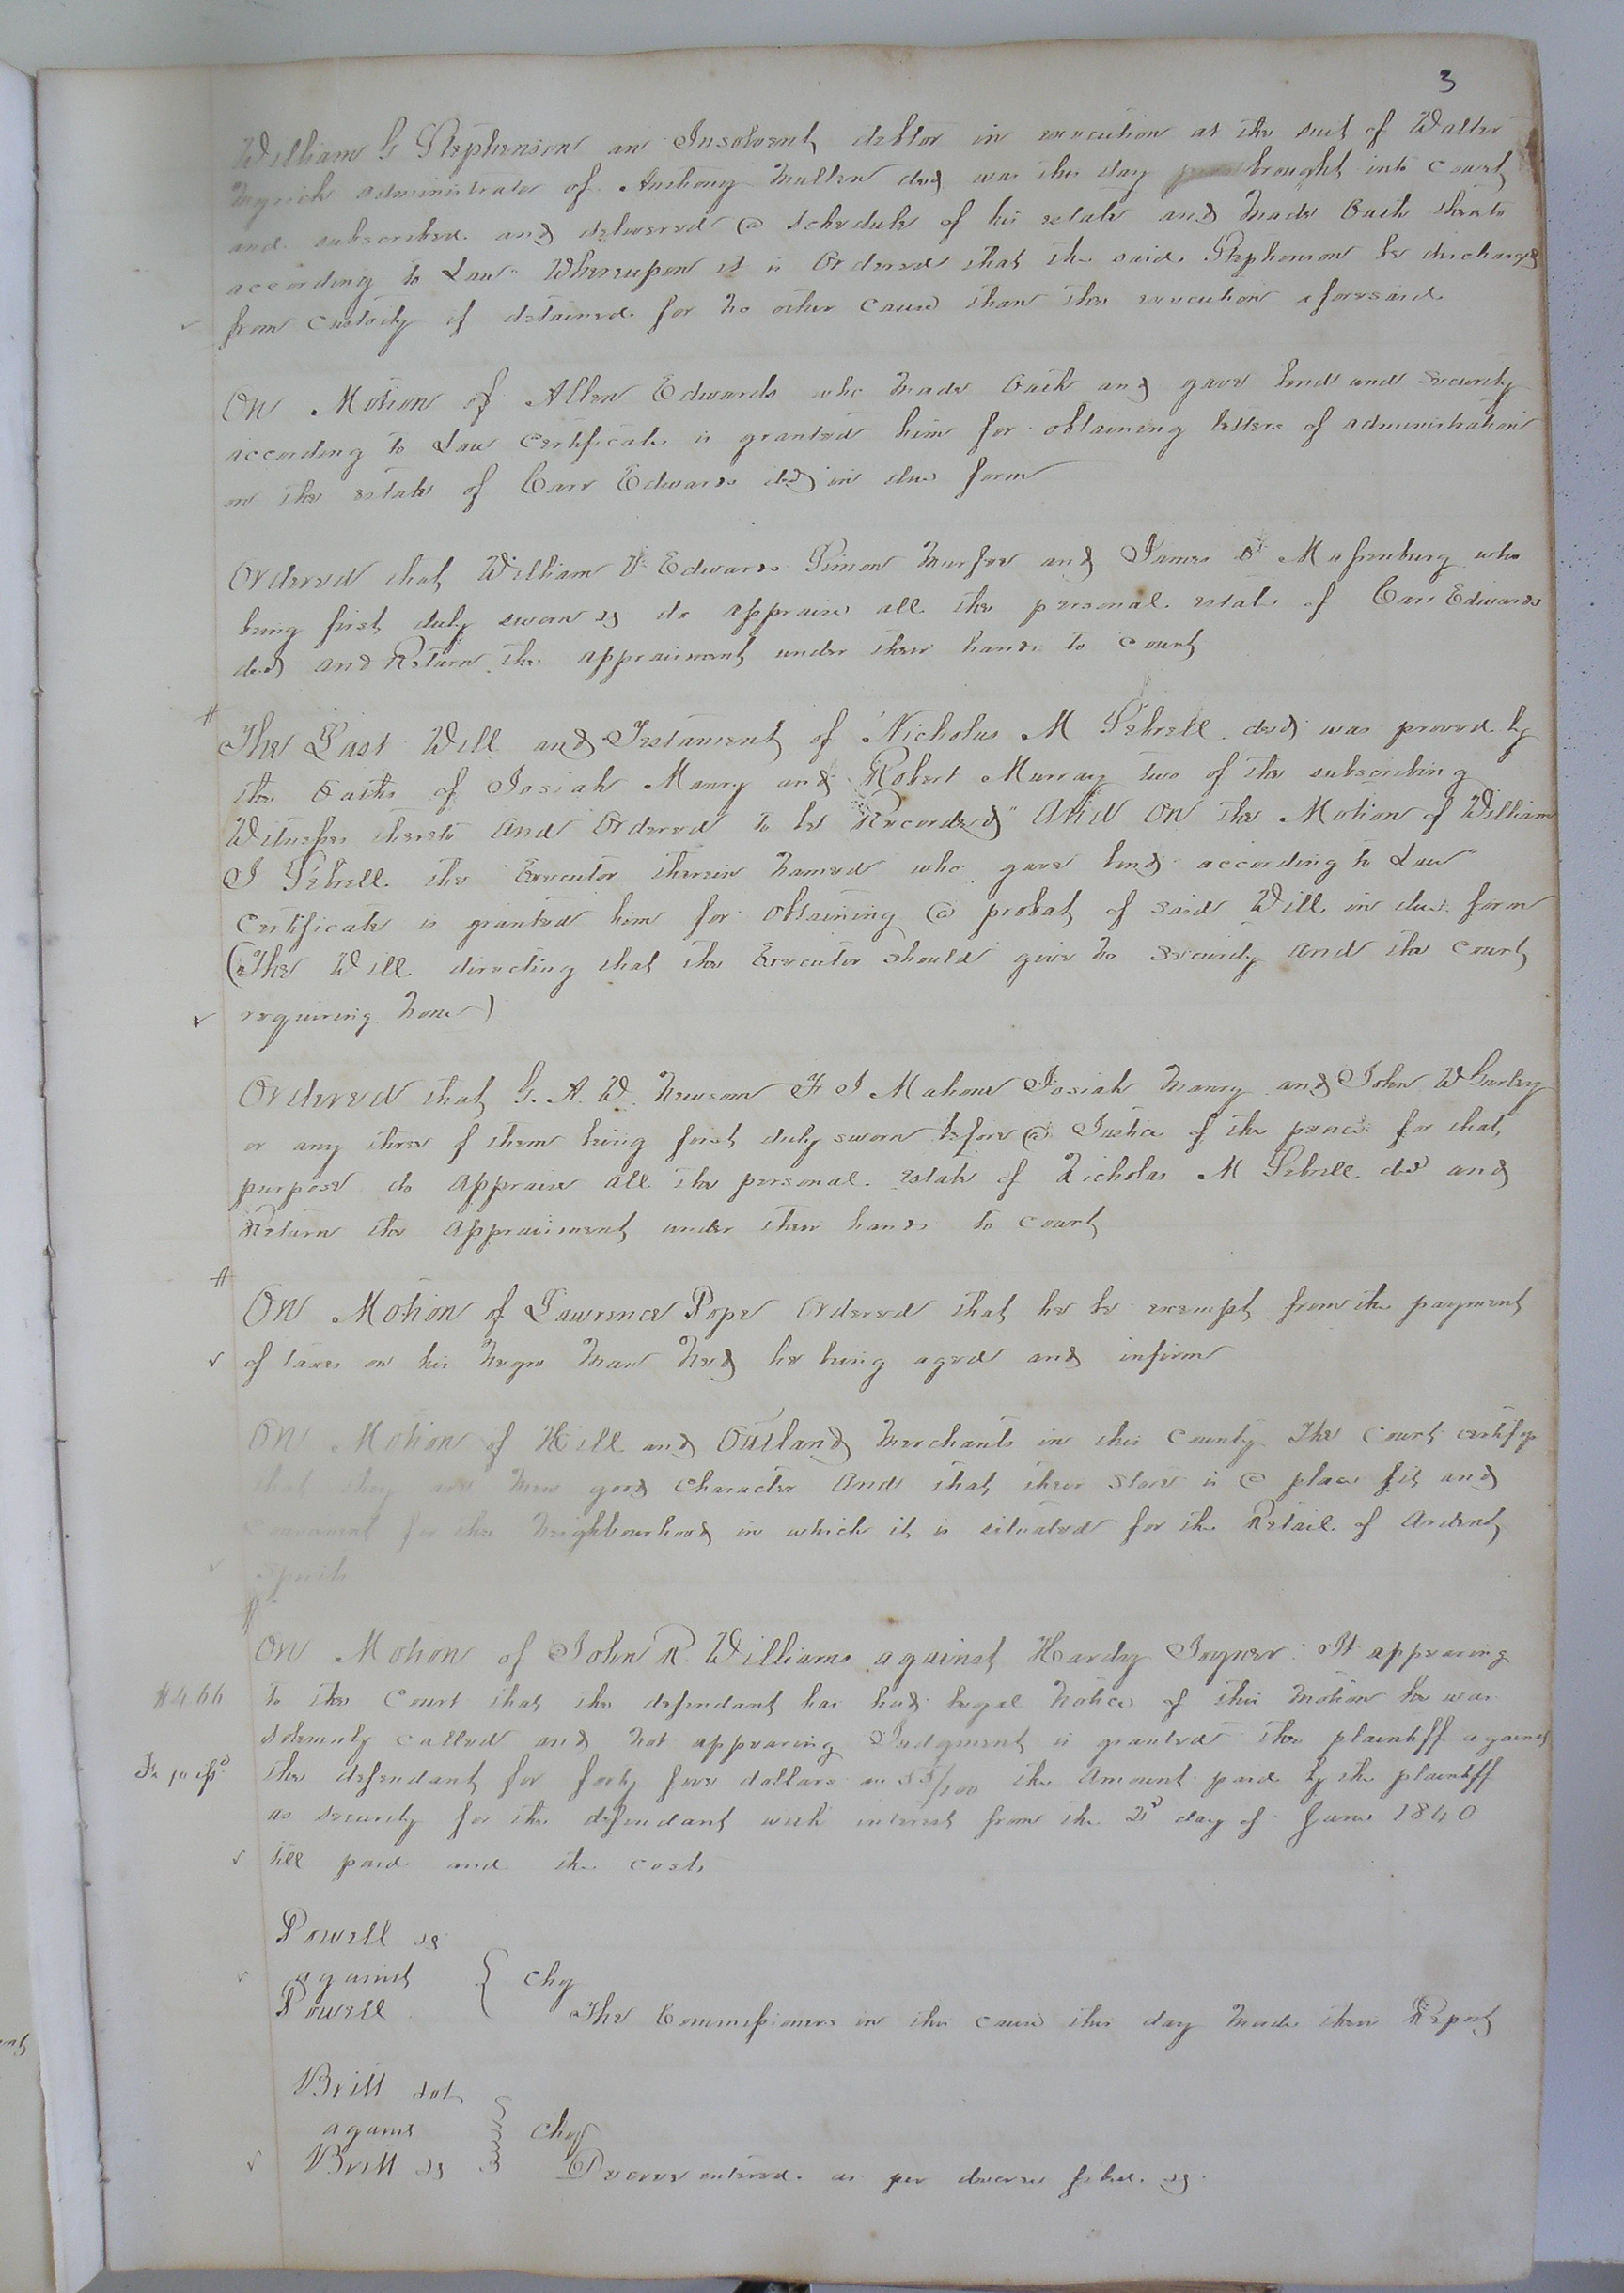 3
William G Stephenson an Insolvent debtor in execution at the suit of Walter
Myrick administrator of Anthony Mullen decd was this day brought into Court
and subscribed and delivered a Schedule of his estate and made Oath thereto
according to Law Whereupon it is Ordered that the said Stephenson be discharged
from Custody if detained for no other cause than the execution aforesaid
On Motion of Allen Edwards who made Oath and gave bond and security
according to Law Certificate is granted him for obtaining letters of administration
on the estate of Carr Edwards decd in due form
Ordered that William Edwards Simon Murfee and James Massenburg who
being first duly sworn &c do appraise all the personal estate of Carr Edwards
decd and Return the appraisment under their hands to Court
#
The Last Will and Testament of Nicholas M Sebrell decd was proved by
the Oaths of Josiah Maury and Robert Murray two of the subscribing
Witnesses thereto And Ordered to be Recorded" And On the Motion of William
J Sebrell the Executor therein named who gave bond according to Law"
Certificate is granted him for Obtaining a probat of said Will in due form
(The Will directing that the Executor should give no Security and the Court
requiring none)
Ordered that G. A. W. Newsom F J Mahone Josiah Maury and John W Gurley
or any three of them being first duly sworn before a Justice of the peace for that
purpose do appraise all the personal estate of Nicholas M Sebrell decd and
Return the Appraisment under their hands to Court
#
On Motion of Lawrence Pope Ordered that he be exempt from the payment
of taxes on his Negro Man Ned he being aged and infirm
On Motion of Hill and Outland Merchants in this County The Court certify
that they are Men good Character And that their Store is a place fit and
convenient for the Neighbourhood in which it is situated for the Retail of Ardent
Spirits
#
On Motion of John R Williams against Hardy Joyner It appearing
$4.66 to the Court that the defendant has had legal Notice of this Motion he was
solemnly called and not appearing Judgment is granted the plaintiff against
the defendant for forty five dollars 55/100 the Amount paid by the plaintiff
as security for the defendant with interest from the day of June 1840
till paid and the costs
Powell &c
against } Chy
Powell The Commissioners in this cause this day made their Report
Britt
against } Chy
Britt &c Decree entered as per decree filed &c